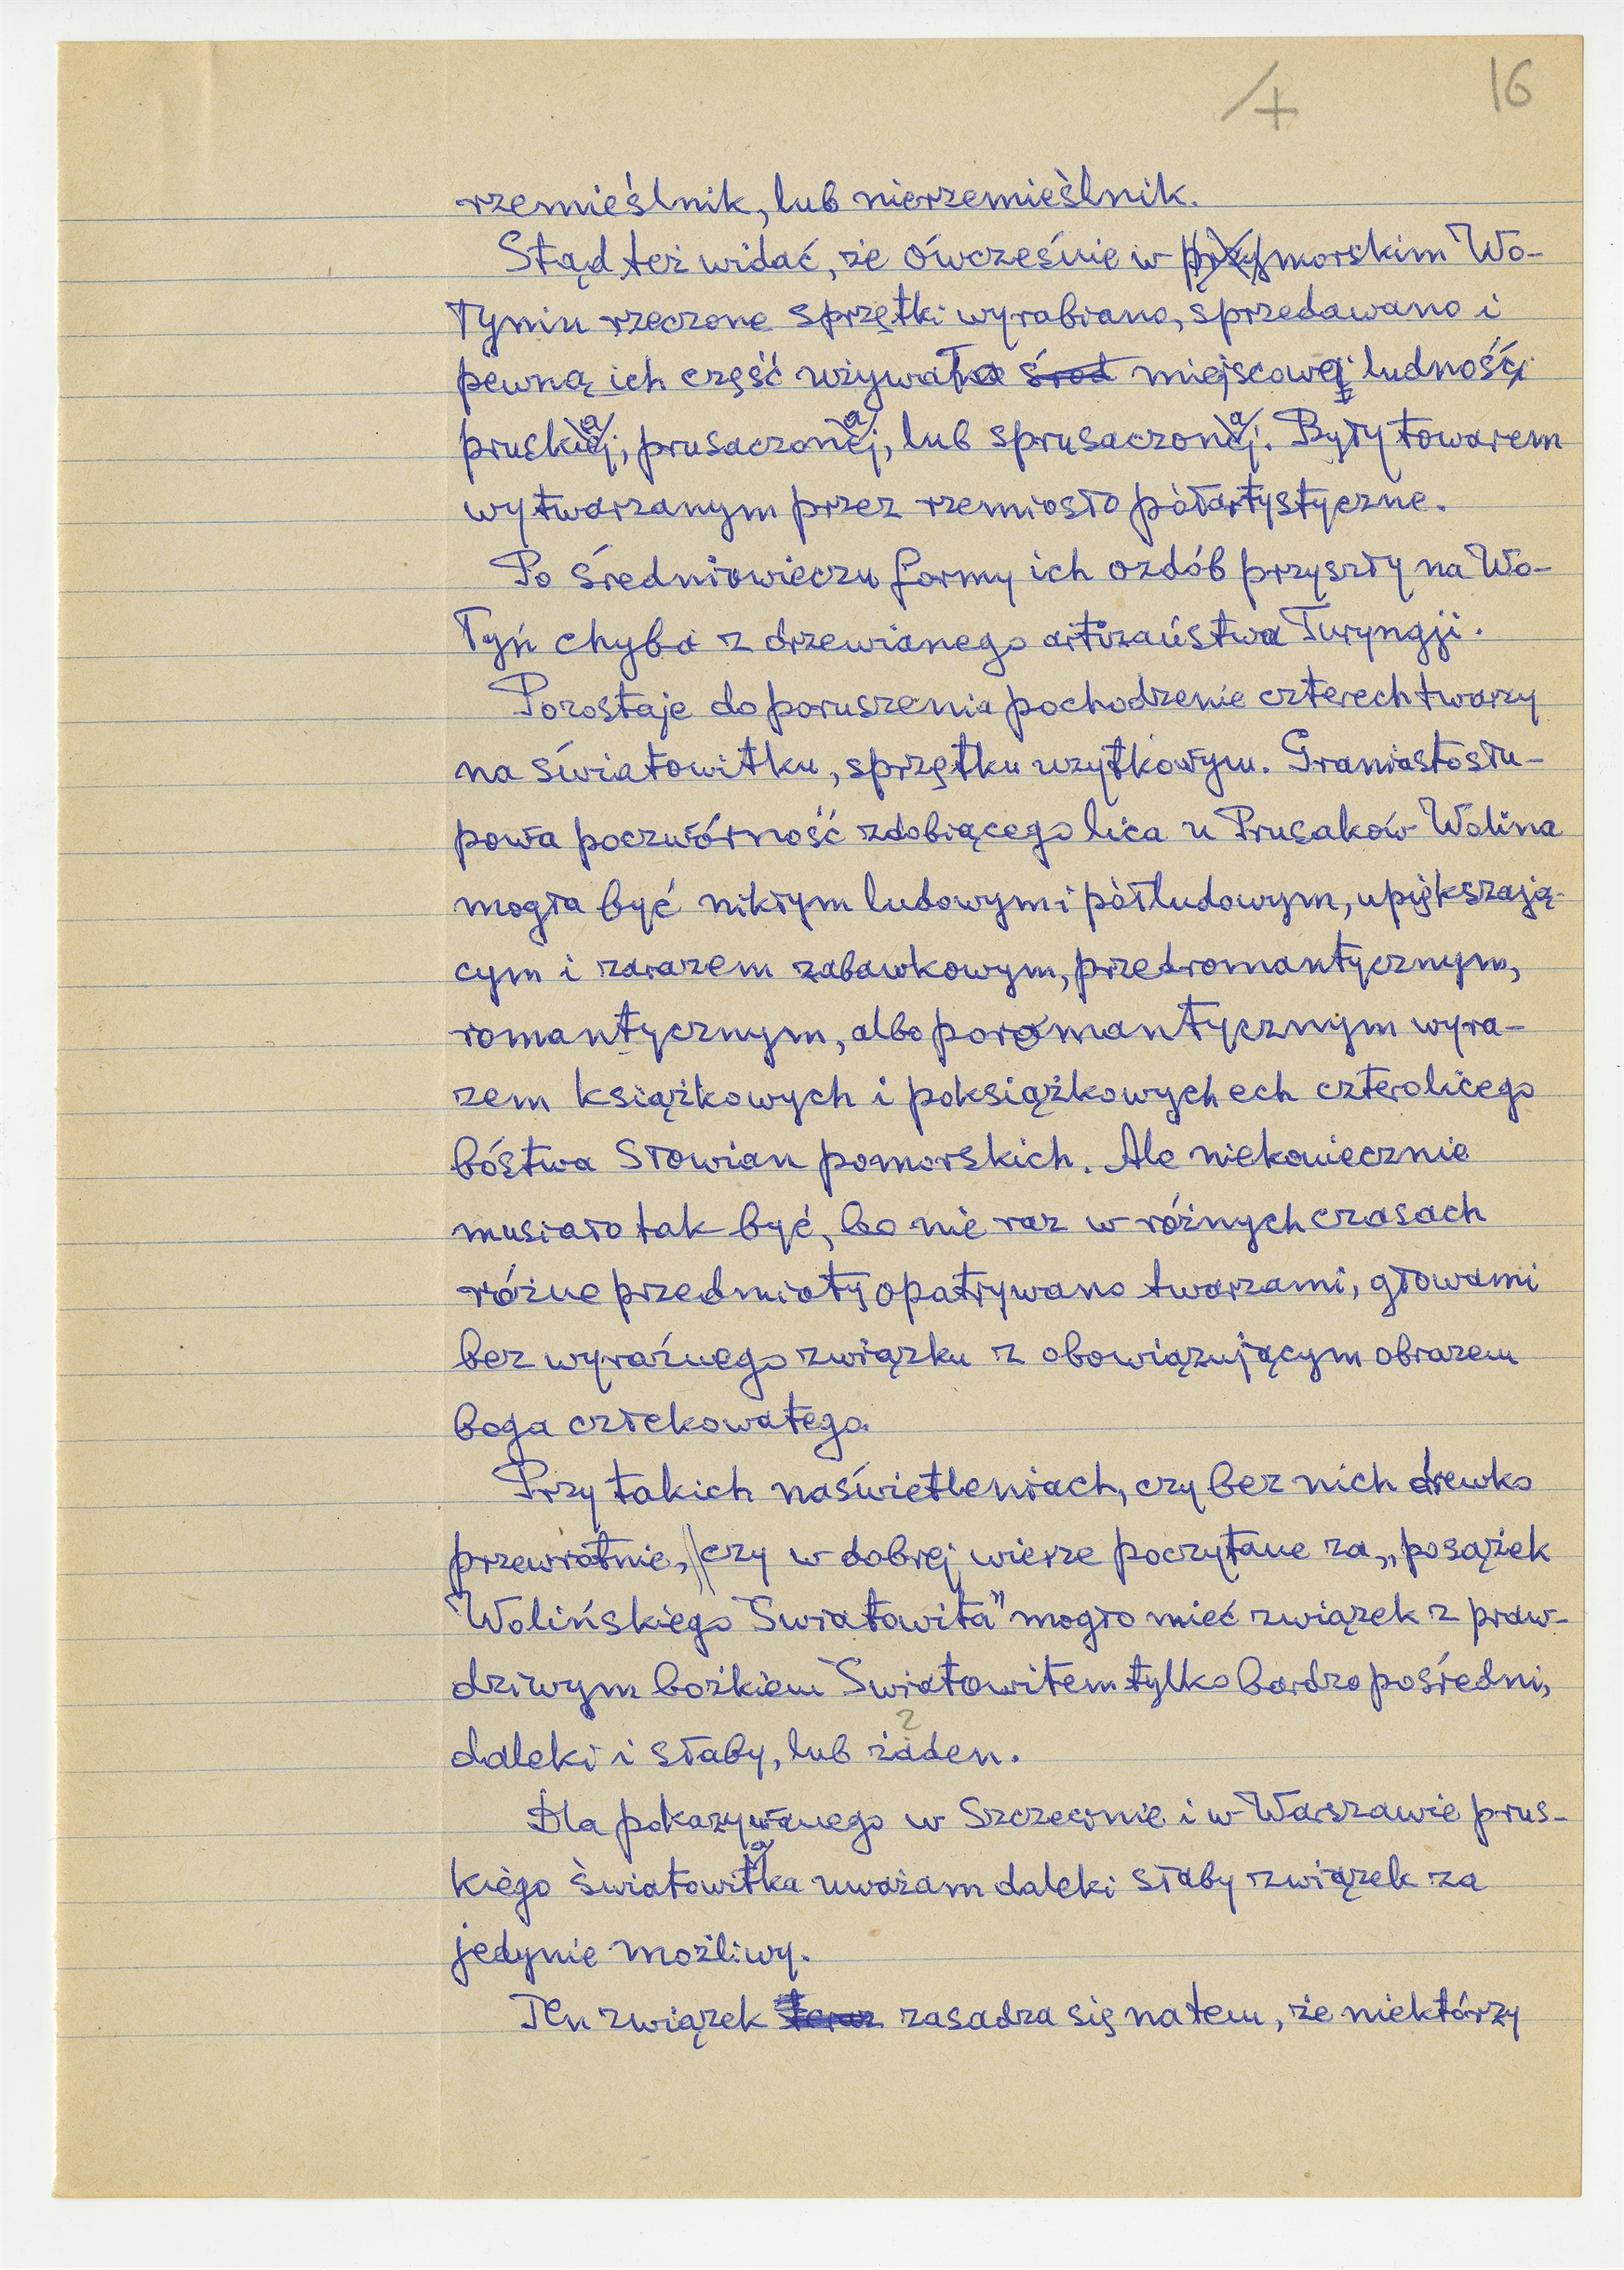 /+ 16
rzemieślnik, lub nierzemieślnik.
Stąd też widać, że ówcześnie w przymorskim Wo-
łyniu rzeczone sprzętki wyrabiano, sprzedawano i
pewną ich część używała śród miejscowa ludność
pruska, prusaczona, lub sprusaczona. Były towarem
wytwarzanym przez rzemiosło półartystyczne.
Po średniowieczu formy ich ozdób przyszły na Wo-
łyń chyba z drzewianego artizaństwa Turyngji.
Pozostaje do poruszenia pochodzenie czterech twarzy
na światowitku, sprzętku użytkowym. Graniastosłu-
powa poczwórność zdobiącego lica u Prusaków Wolina
mogła być nikłym ludowym i półludowym, upiększają-
cym i zarazem zabawkowym, przedromantycznym,
romantycznym, albo poromantycznym wyra-
zem książkowych i poksiążkowych ech czterolicego
bóstwa Słowian pomorskich. Ale niekoniecznie
musiało tak być, bo nie raz w różnych czasach
różne przedmioty opatrywano twarzami, głowami
bez wyraźnego związku z obowiązującym obrazem
boga człekowatego.
Przy takich naświetleniach, czy bez nich drewko
przewrotnie, czy w dobrej wierze poczytane za „posążek
Wolińskiego Światowita" mogło mieć związek z praw-
dziwym bożkiem Światowitem tylko bardzo pośredni,
daleki i słaby, lub żaden.
Dla pokazywanego w Szczecinie i w Warszawie prus-
kiego światowitka uważam daleki słaby związek za
jedynie możliwy.
Ten związek teraz zasadza się na tem, że niektórzy